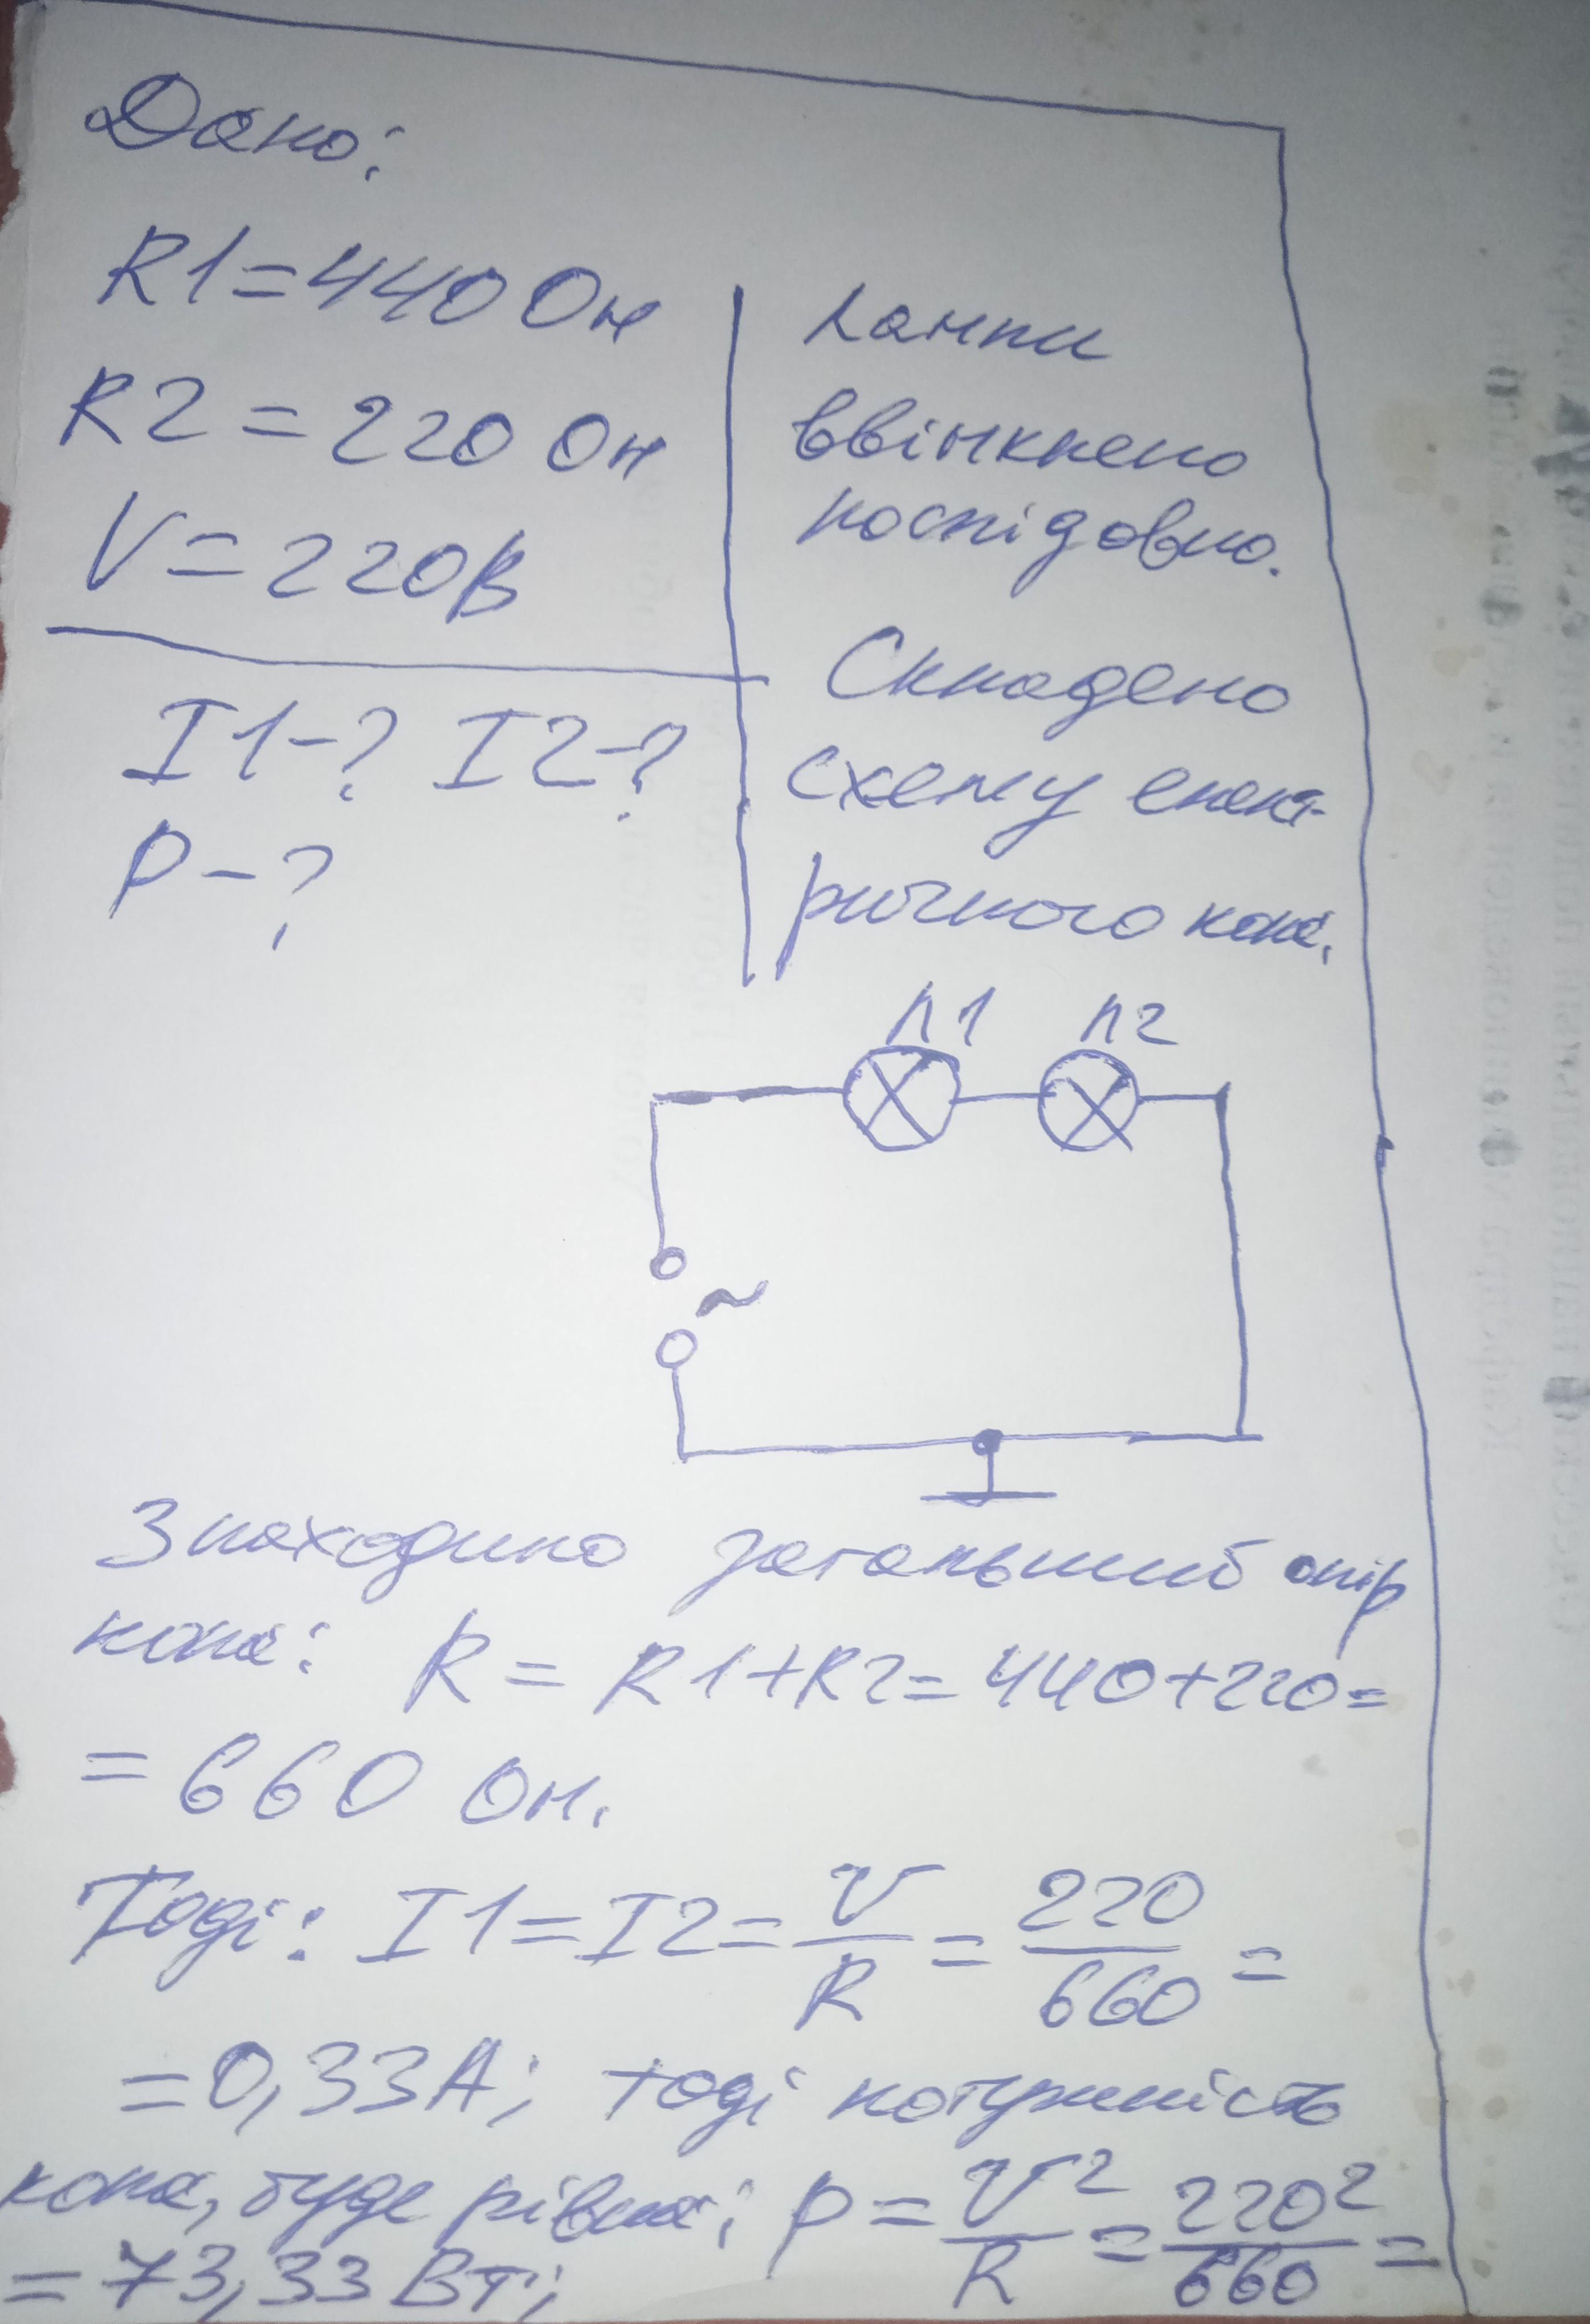 Дано:
R1=440 Ом
R2=220 Ом
V=220В
I1-? I2-?
P-?
Лампи
ввімкнено
послідовно.
Складено
схему елект-
ричного кола.
Л1 Л2
~
Знаходимо загальний опір
кола: R = R1+R2=440+220=
= 660 Ом.
Тоді: I1=I2=V/R=220/660=
=0,33А; тоді потужність
кола, буде рівна; P=V²/R=220²/660=
=73,33 Вт;